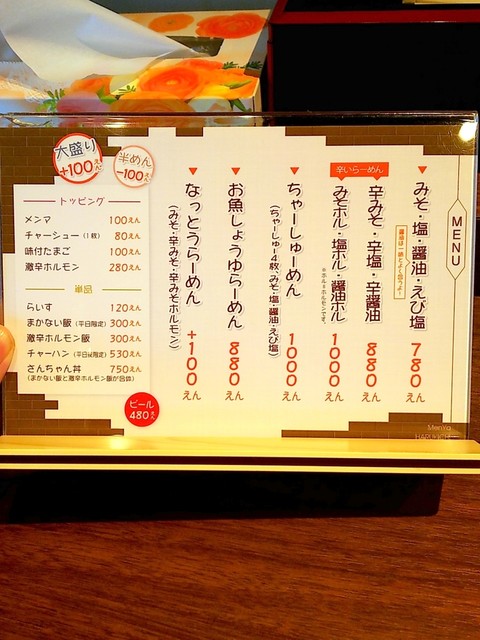 MENU
みそ・塩・醤油・えび塩 780えん
醤油は一番とよく合うよ。
辛いらーめん
辛みそ・辛塩・辛醤油 880えん
みそホル・塩ホル・醤油ホル 1000えん
※ホル=ホルモンです。
ちゃーしゅーめん 1000えん
(ちゃーしゅー4枚、みそ・塩・醤油・えび塩)
お魚しょうゆらーめん 880えん
なっとうらーめん +100えん
(みそ・辛みそ・辛みそホルモン)
大盛り
+100えん
半めん
-100えん
トッピング
メンマ 100えん
チャーシュー(1枚) 80えん
味付たまご 100えん
激辛ホルモン 280えん
単品
らいす 120えん
まかない飯(平日限定) 300えん
激辛ホルモン飯 300えん
チャーハン(平日昼限定) 530えん
さんちゃん丼 750えん
(まかない飯と激辛ホルモン飯が合体)
ビール
480えん
Menya
HARUKICHI